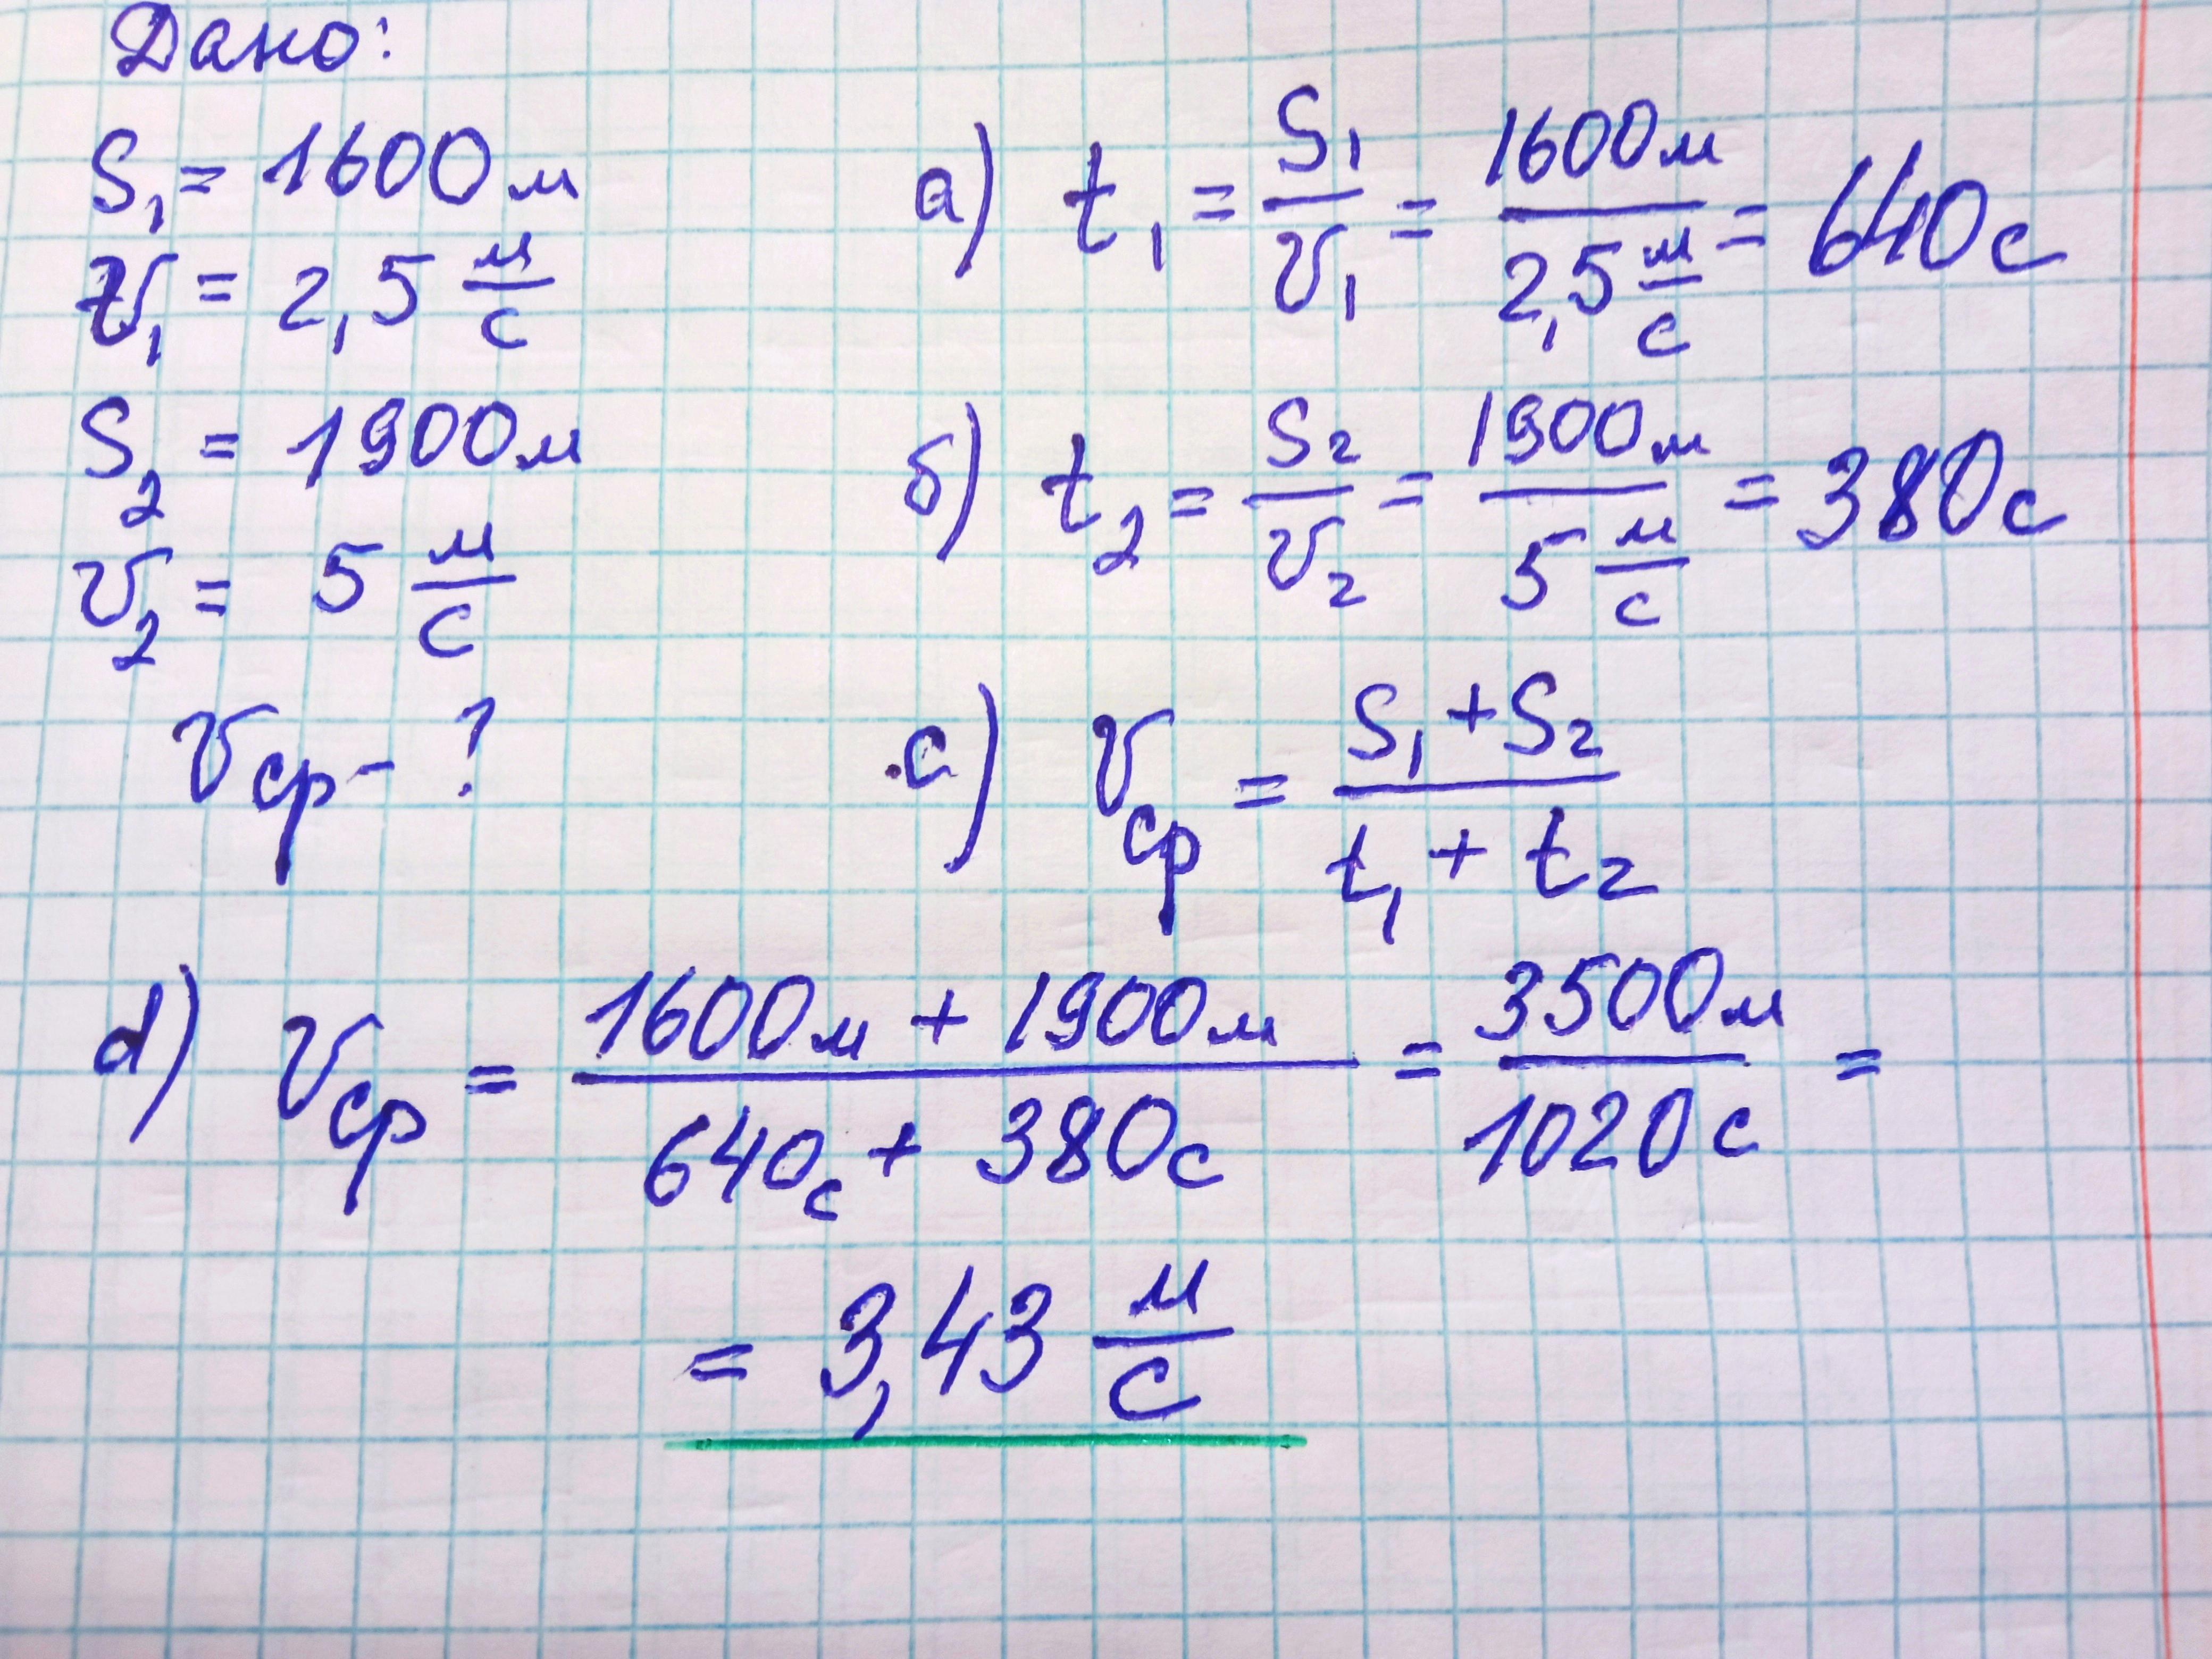 Дано:
S₁ = 1600 м
v₁ = 2,5 м/с
S₂ = 1900 м
v₂ = 5 м/с
vср - ?
а) t₁ = S₁/v₁ = 1600м/2,5 м/с = 640с
б) t₂ = S₂/v₂ = 1900м/5 м/с = 380с
с) vср = S₁ + S₂/t₁ + t₂
d) vср = 1600м + 1900м/640с + 380с = 3500м/1020с =
= 3,43 м/с